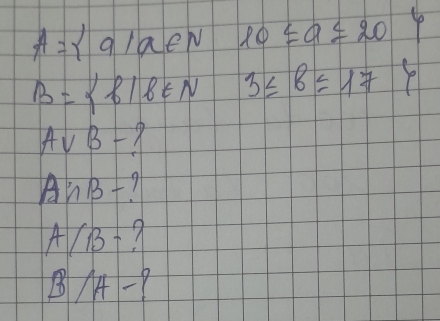 A = { a / a ∈ N 10 ≤ a ≤ 20 }
B = { b / b ∈ N 3 ≤ b ≤ 17 }
A ∪ B - ?
A ∩ B - ?
A / B - ?
B / A - ?